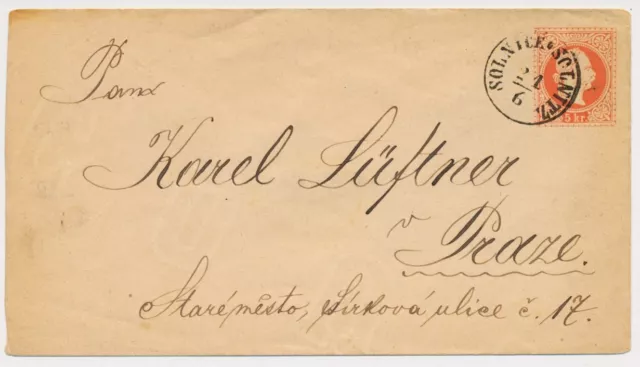 SOLNICE * SOLNITZ
21/6
5 kr.
Pan
Karel Lüftner
v
Praze.
Staréměsto, Sírková ulice č. 17.